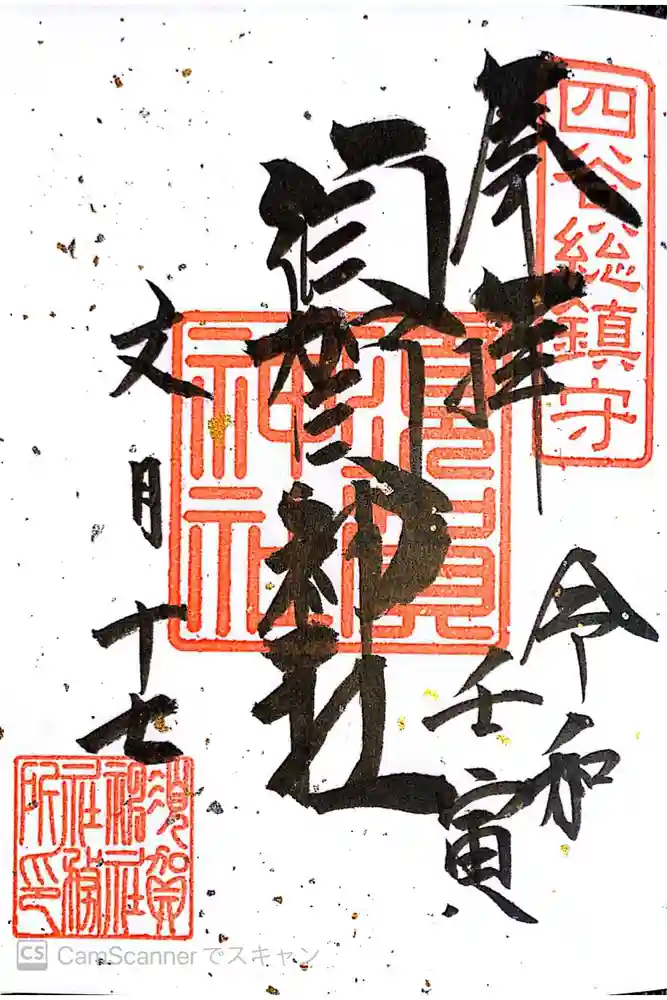 四谷総鎮守
奉拝
令和
壬寅
須賀神社
須賀
神社
文月十七
須賀
神社
社務
所印
CS CamScannerでスキャン